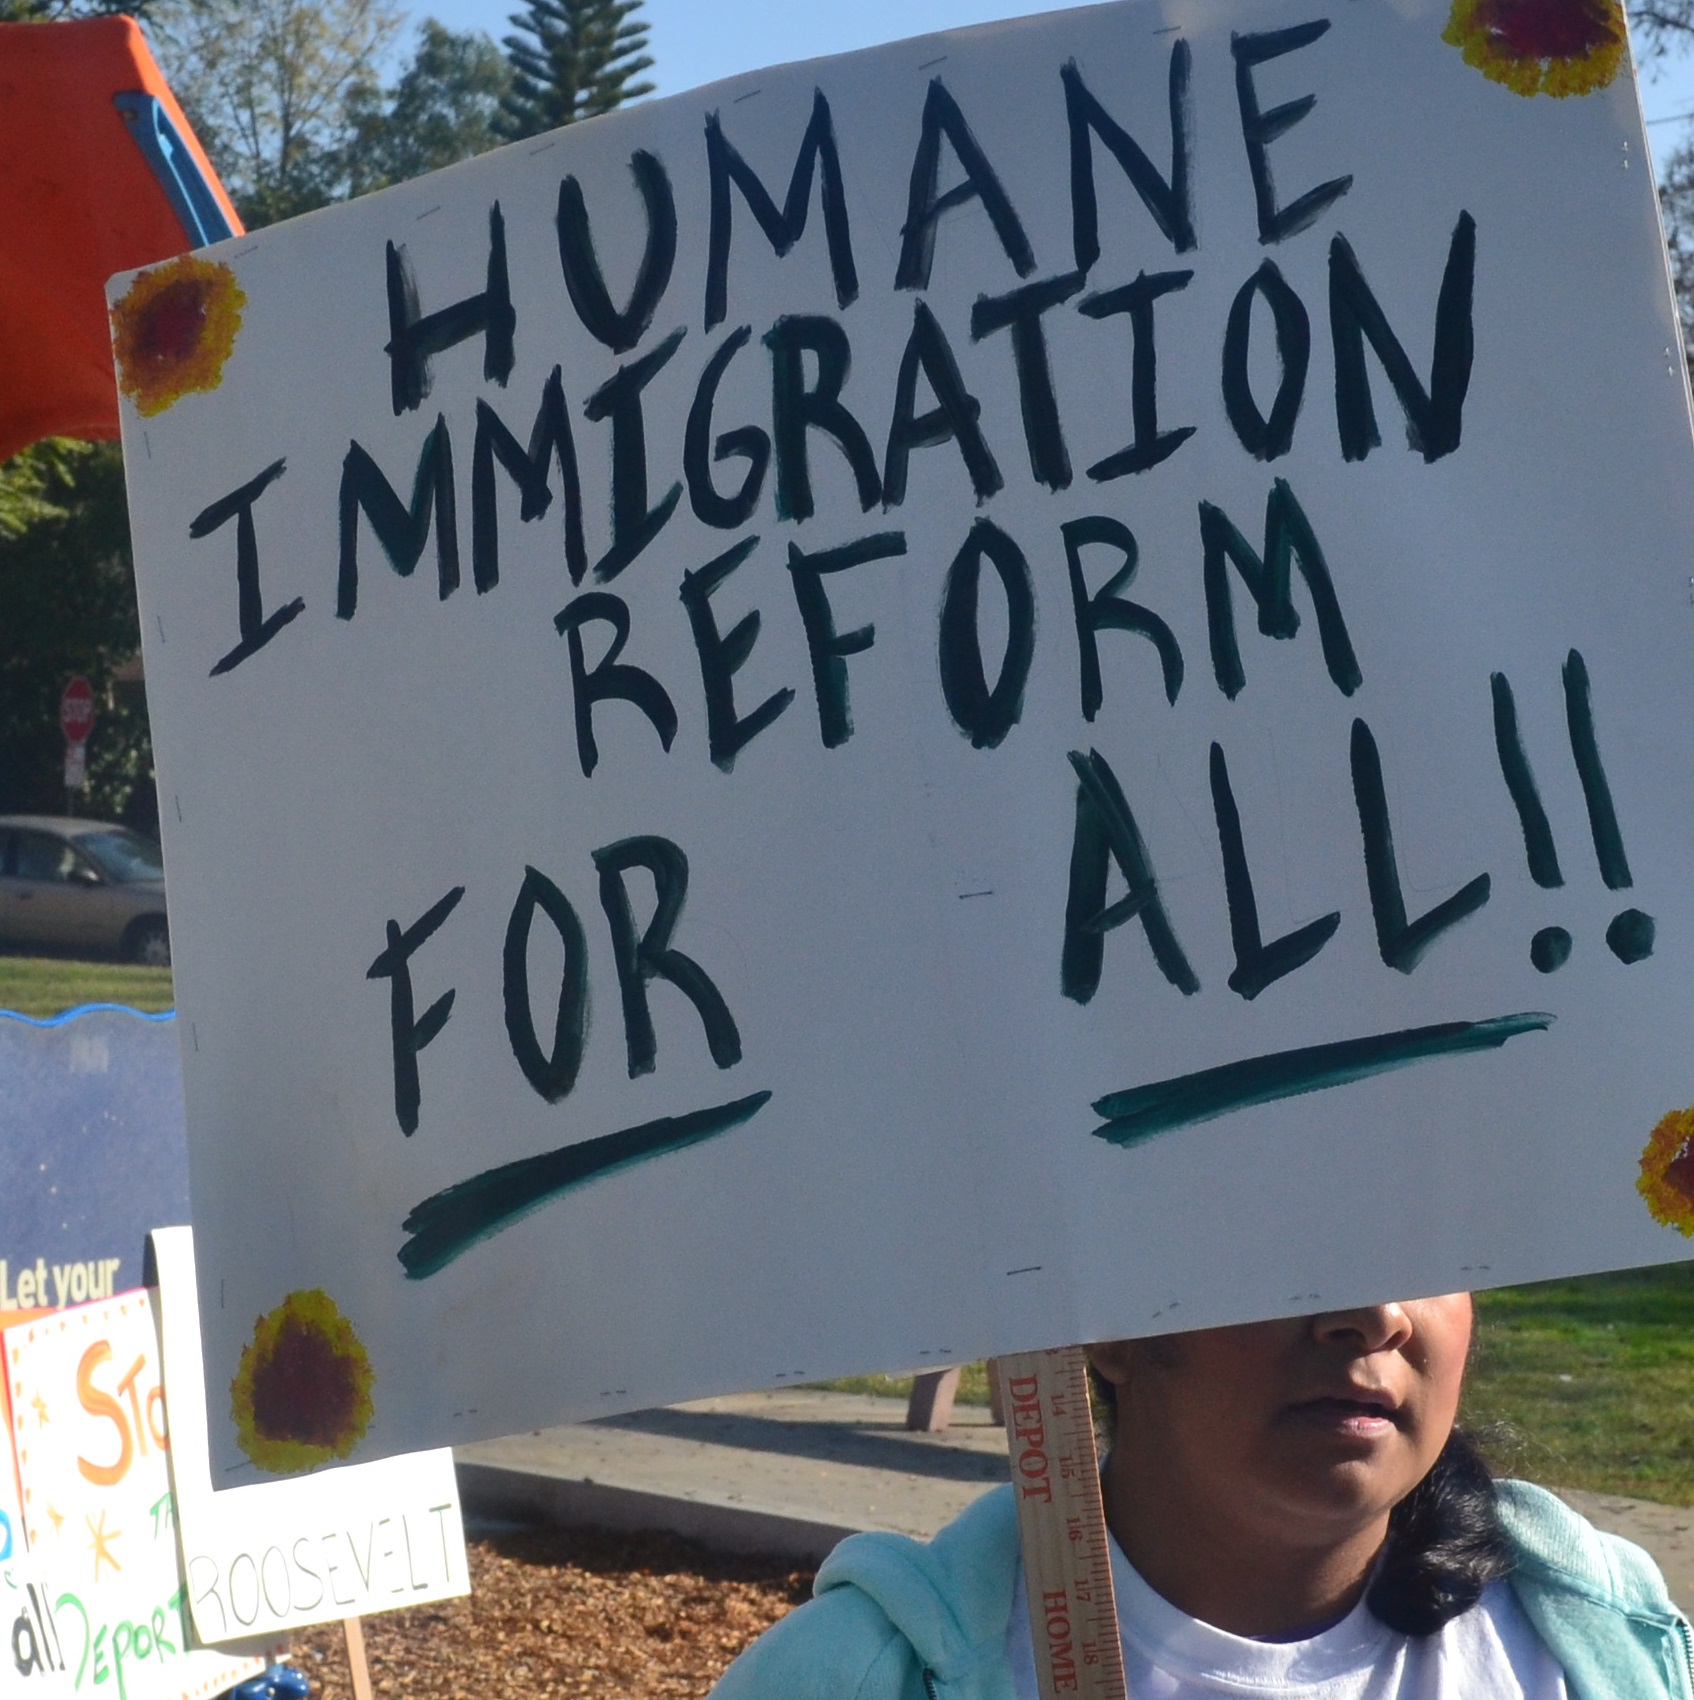 HUMANE
IMMIGRATION
REFORM
FOR ALL!!
STOP
Let your
STO
all DEPORT
ROOSEVELT
DEPOT
14
15
16
HOME
17
18